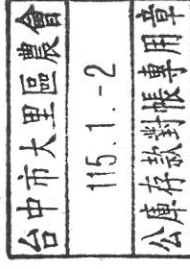 台中市大里區農會
115.1.-2
公庫存款對帳專用章